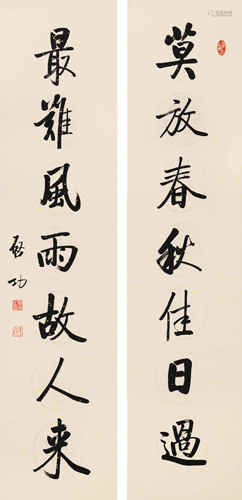 莫放春秋佳日過
最難風雨故人来
啓功